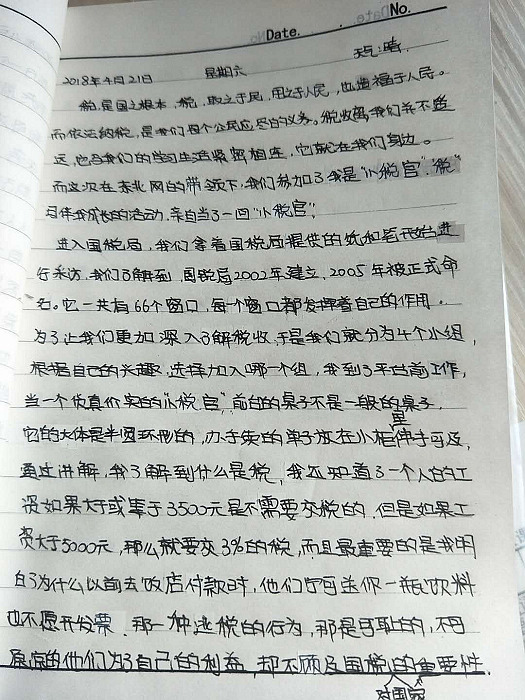 Date. No.
2018年4月21日 星期六 天气:晴.
税,是国之根本,税,取之于民,用之于人民,也造福于人民。
而依法纳税,是我们每个公民应尽的义务。税收离我们并不遥
远,也与我们的学习生活紧密相连,它就在我们身边。
而这次在东北网的带领下,我们参加了我是"小税官",税"
月伴我成长的活动,亲自当了一回"小税官",
进入国税局,我们拿着国税局提供的纸和笔开始进
行采访,我们了解到,国税局2002年建立,2005年被正式命
名。它一共有66个窗口,每个窗口都发挥着自己的作用。
为了让我们更加深入了解税收,于是我们就分为4个小组,
根据自己的兴趣,选择加入哪一个组,我到了平台前工作,
当一个货真价实的"小税官",前台的桌子不是一般的桌子,
它的大体是半圆环形的,办手续的单子放在小柜里伸手可及,
通过讲解,我了解到什么是税,我还知道了一个人的工
资如果大于或等于3500元是不需要交税的,但是如果工
资大于5000元,那么就要交3%的税,而且最重要的是我明
白了为什么以前去饭店付款时,他们宁可送你一瓶饮料
也不愿开发票,那一种逃税的行为,那是可耻的,不可
原谅的他们为了自己的利益,却不顾及国税对国家的重要性.